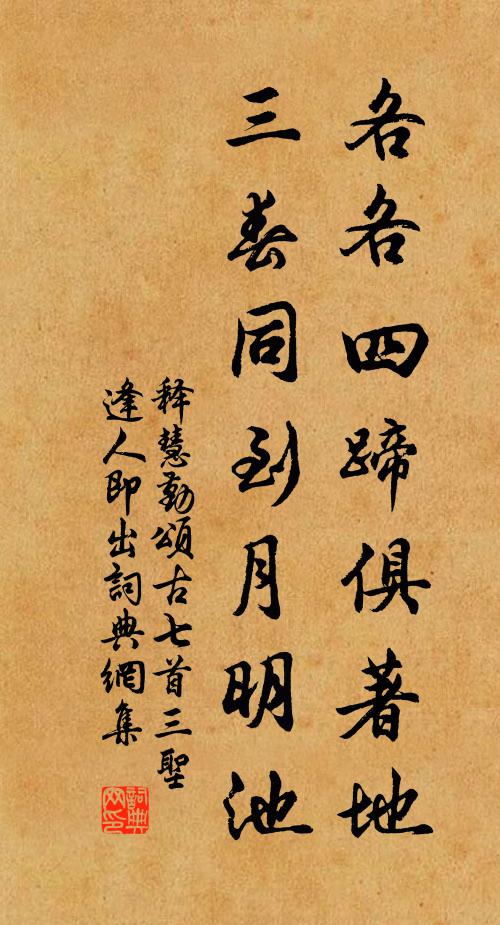 各各四蹄俱著地
三春同到月明池
释慧勤頌古七首三聖
逢人即出詞典網集
詞典网印